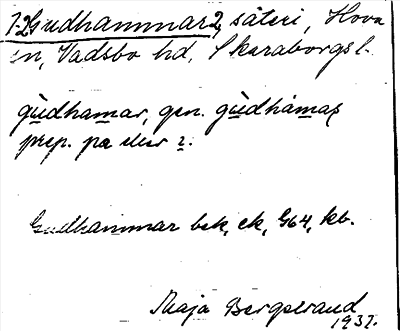 1-2 Gudhammar 2, säteri, Hova
sn, Vadsbo hd, Skaraborgs l.
gùdhamar, gen. gùdhámas
prep. pa eller i.
Gudhammar bek, ek, G64, kb.
Maja Bergstrand
1937.